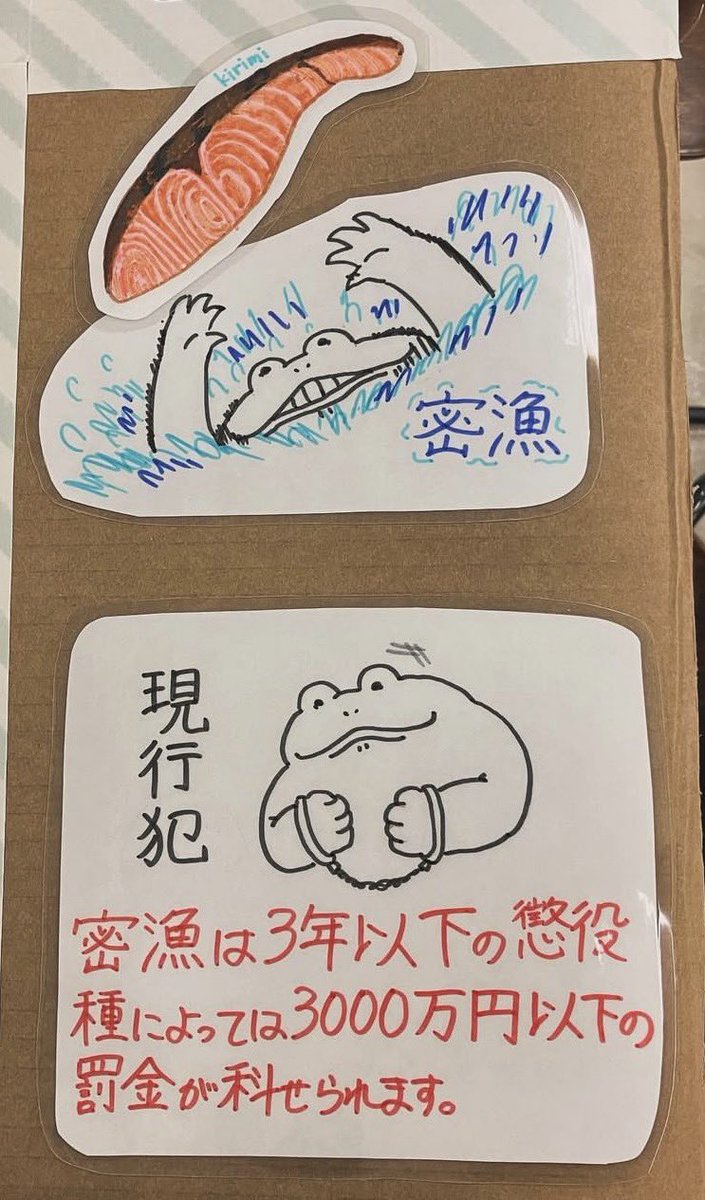 kirimi
密漁
現行犯
密漁は3年以下の懲役
種によっては3000万円以下の
罰金が科せられます。